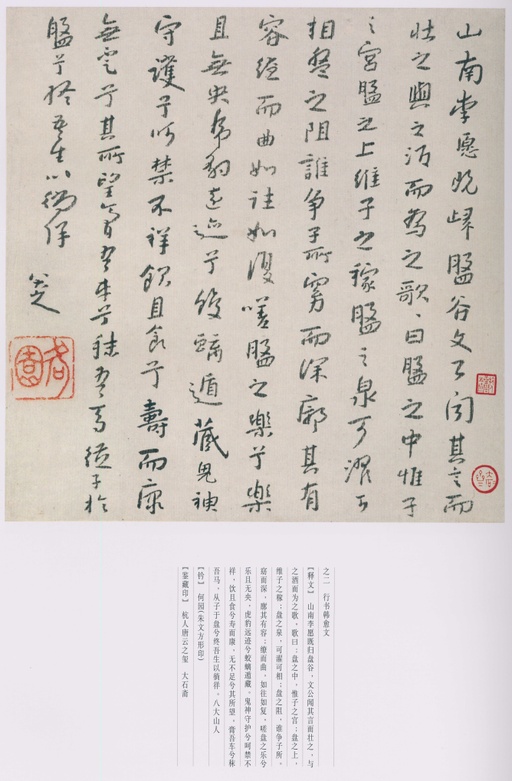 山南李愿既歸盤谷文公聞其言而
壯之與之酒而為之歌、曰盤之中惟子
之宮盤之上維子之稼盤之泉可濯可
相盤之阻誰爭子所窈而深廓其有
容繚而曲如往如復嗟盤之樂兮樂
且無央虎豹遠迹兮蛟螭遁藏鬼神
守護兮呵禁不祥飲且食兮壽而康
無不足兮其所望膏吾車兮秣吾馬從子於
盤兮終吾生以徜徉
八大山人
何園
之二 行书韩愈文
【释文】 山南李愿既归盘谷，文公闻其言而壮之，与
之酒而为之歌，歌曰：盘之中，惟子之宫；盘之上，
维子之稼；盘之泉，可濯可相；盘之阻，谁争子所。
窈而深，廓其有容；缭而曲，如往如复。嗟盘之乐兮
乐且无央，虎豹远迹兮蛟螭遁藏。鬼神守护兮呵禁不
祥，饮且食兮寿而康，无不足兮其所望，膏吾车兮秣
吾马，从子于盘兮终吾生以徜徉。八大山人
【钤】 何园(朱文方形印)
【鉴藏印】 杭人唐云之玺 大石斋